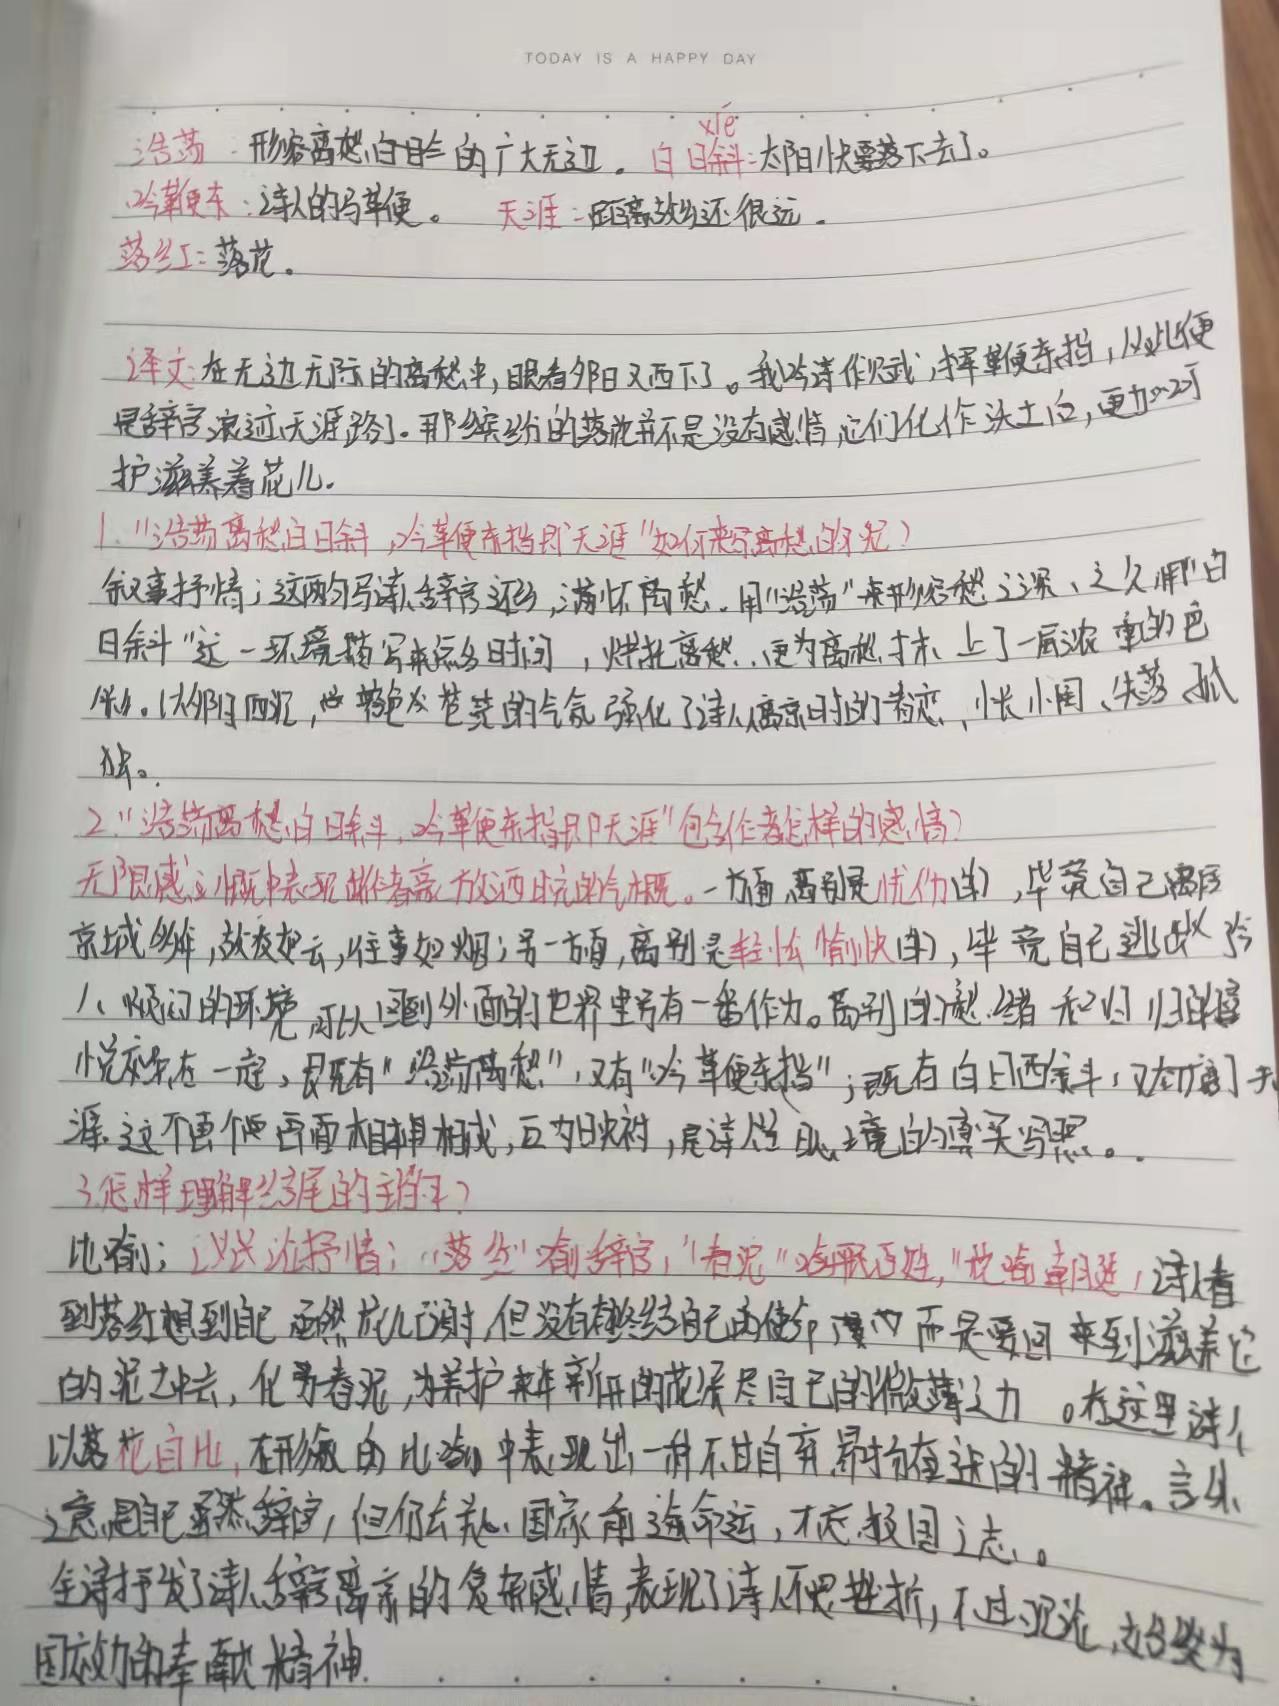 TODAY IS A HAPPY DAY
xié
浩荡：形容离愁白日斜的广大无边。白日斜：太阳快要落下去了。
吟鞭东：诗人的马鞭。 天涯：距离故乡还很远。
落红：落花。
译文：在无边无际的离愁中，眼看夕阳又西下了。我吟诗作赋，挥鞭东指，从此便
是辞官浪迹天涯路了。那缤纷的落花并不是没有感情，它们化作沃土后，更加
护滋养着花儿。
1."浩荡离愁白日斜，吟鞭东指即天涯"如何来写离愁的状况？
叙事抒情；这两句写诗人辞官还乡，满怀离愁．用"浩荡"来形容愁之深、之久，用"白
日斜"这一环境描写来点名时间，烘托离愁，更为离愁抹上了一层浓重的色
彩。以夕阳西沉，暮色苍茫的气氛强化了诗人离京时的眷恋、惆怅、失落、孤
独。
2."浩荡离愁白日斜，吟鞭东指即天涯"包含作者怎样的感情？
无限感慨中表现出作者豪放洒脱的气概。一方面，离别是忧伤的，毕竟自己寓居
京城多年，故友如云，往事如烟；另一方面，离别是轻松愉快的，毕竟自己逃出令
人烦闷的环境，可以回到外面的世界里另有一番作为。离别的愁绪和归的喜
悦交织在一起，是既有"浩荡离愁"，又有"吟鞭东指"；既有白日西斜，又有广阔天
涯．这个画面相辅相成，互为映衬，是诗人心境的真实写照。
3.怎样理解结尾的主旨句？
比喻；议论抒情；"落红"喻辞官，"春泥"喻百姓，"花"喻朝廷，诗人看
到落红想到自己虽然花儿已谢，但没有终结自己的使命，而是要回来到滋养它
的泥土中去，化为春泥，为养护来年新开的花源尽自己的微薄之力。在这里诗人
以落花自比，在形象的比喻中表现出一种不甘自弃、昂扬奋进的精神。言外
之意是自己虽然辞官，但仍会关心国家前途命运，不忘报国之志。
全诗抒发了诗人辞官离京的复杂感情，表现了诗人不畏挫折，不甘沉沦，始终为
国效力的奉献精神．